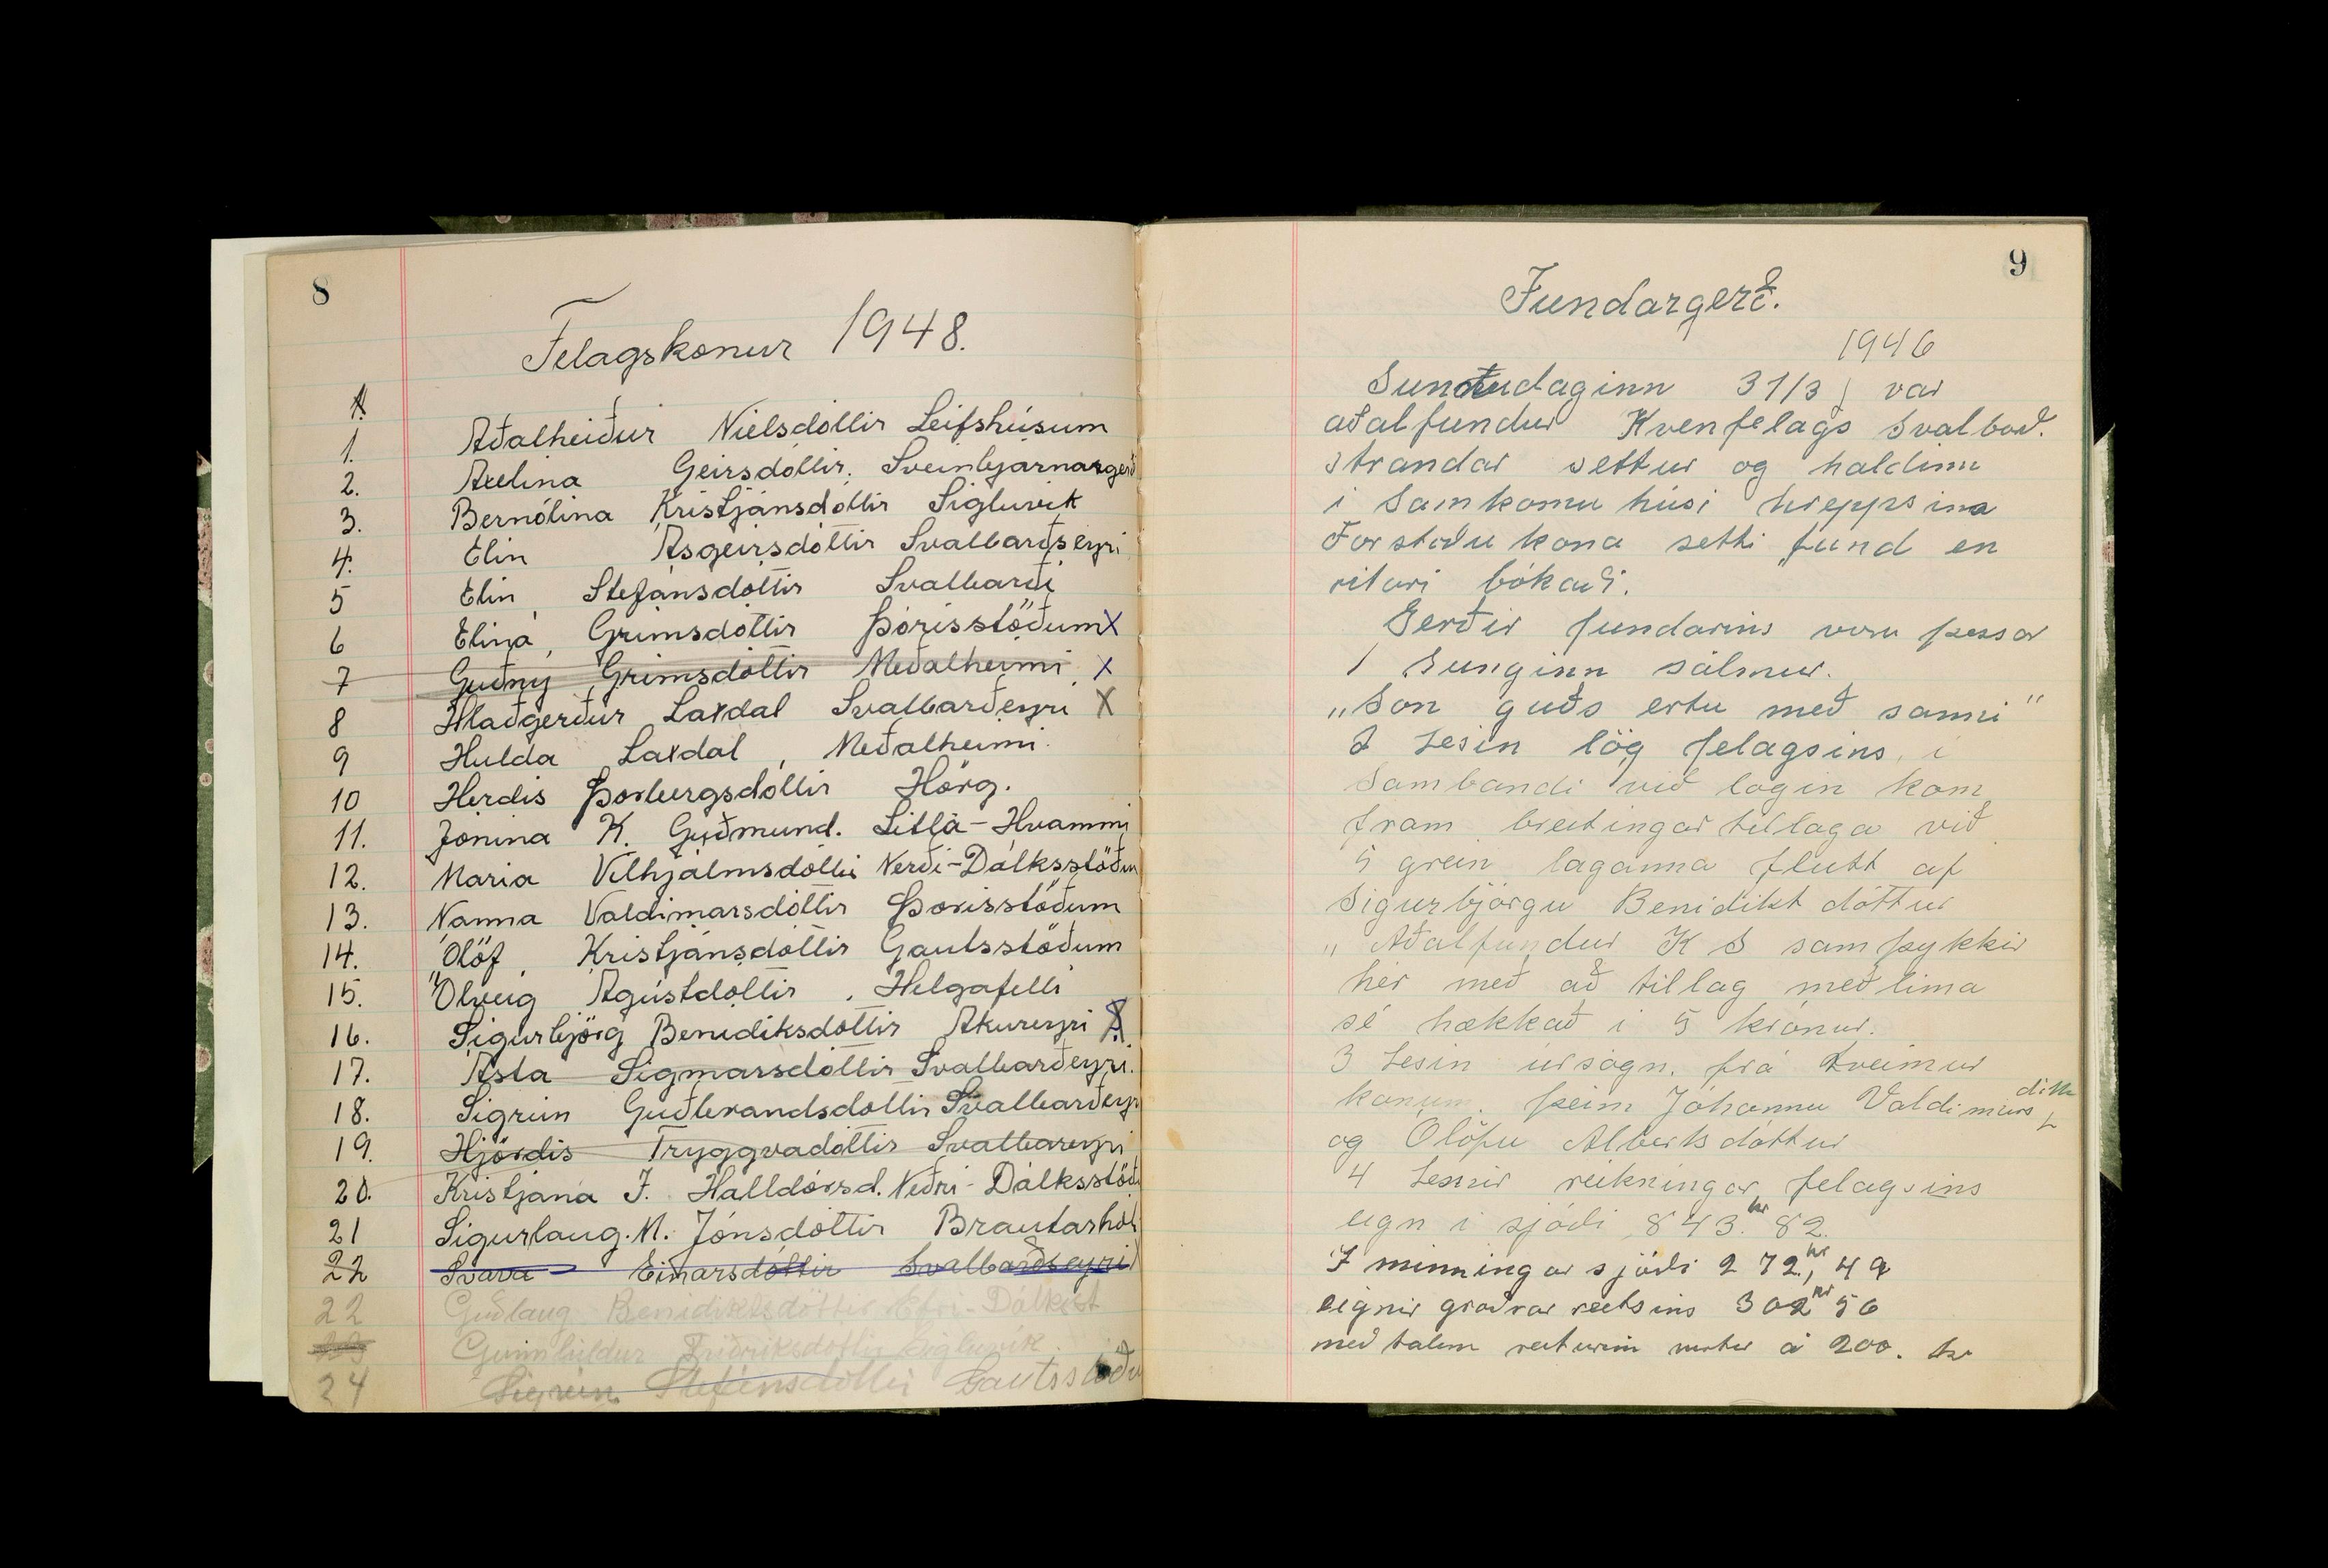 8
Felagskonur 1948.
1. Aðalheiður Níelsdóttir Leifshúsum
2. Axelina Geirsdóttir. Sveinbjarnargerð
3. Bernólina Kristjánsdóttir Sigluvík
4. Elin Ásgeirsdóttir Svalbarðseyri
5 Elin Stefánsdóttir Svalbarði
6 Elina Grímsdóttir Þórisstöðum X
7 Guðny Grímsdóttir Meðalheimi X
8 Hlaðgerður Laxdal Svalbarðeyri X
9 Hulda Laxdal, Meðalheimi.
10 Herdis Þorbergsdóttir Hörg.
11. Jónina K. Guðmund. Litla-Hvammi
12. Maria Vilhjálmsdóttir Nerði-Dálksstöðum
13. Nanna Valdimarsdóttir Þorisstöðum
14. Ólöf Kristjánsdóttir Gautsstöðum
15. Ólveig Ágústdóttir, Helgafelli
16. Sigurbjörg Benediksdóttir Akureyri X
17. Ásta Sigmarsdóttir Svalbarðeyri.
18. Sigrún Guðbrandsdóttir Svalbarðeyri
19. Hjördis Tryggvadóttir Svalbareyri
20. Kristjana I. Halldórsd. Neðri-Dálksstöð
21 Sigurlaug. M. Jónsdóttir Brautarhól
22 Svava Einarsdóttir Svalbarðseyri
22 Guðlaug Benidiktsdóttir Efri-Dálkst
Gunnhildur Friðriksdóttir Sigluvík.
24 Sigrún Stefánsdóttir Gautsstöðu
9
Fundargerð.
1946
Sunnudaginn 31/3 var
aðalfundur Kvenfelags Svalbað.
strandar settur og haldinn
i Samkomu húsi hreppsins
Forstöðu kona setti fund en
ritari bókaði.
Gerðir fundarins voru þessar
1 Sunginn sálmur.
„Son guðs ertu með sanni"
2 Lesin lög felagsins, i
Sambandi við lögin kom
fram breitingartillaga við
5 grein laganna flutt af
Sigurbjörgu Benidikt dóttur
„Aðalfundur K S samþykkir
hér með að tillag meðlima
sé hækkað i 5 krónur.
3 Lesin úrsögn. frá tveimur
konum. þeim Jóhönnu Valdimars dóttur
og Ólöfu Alberts dóttur
4 Lesnir reikningar felagsins
eign i sjóði 843.kr 82.
I minningar sjóði 272,kr 49
eignir groðrar reitsins 302kr 56
með talum reiturin metur á 200. kr